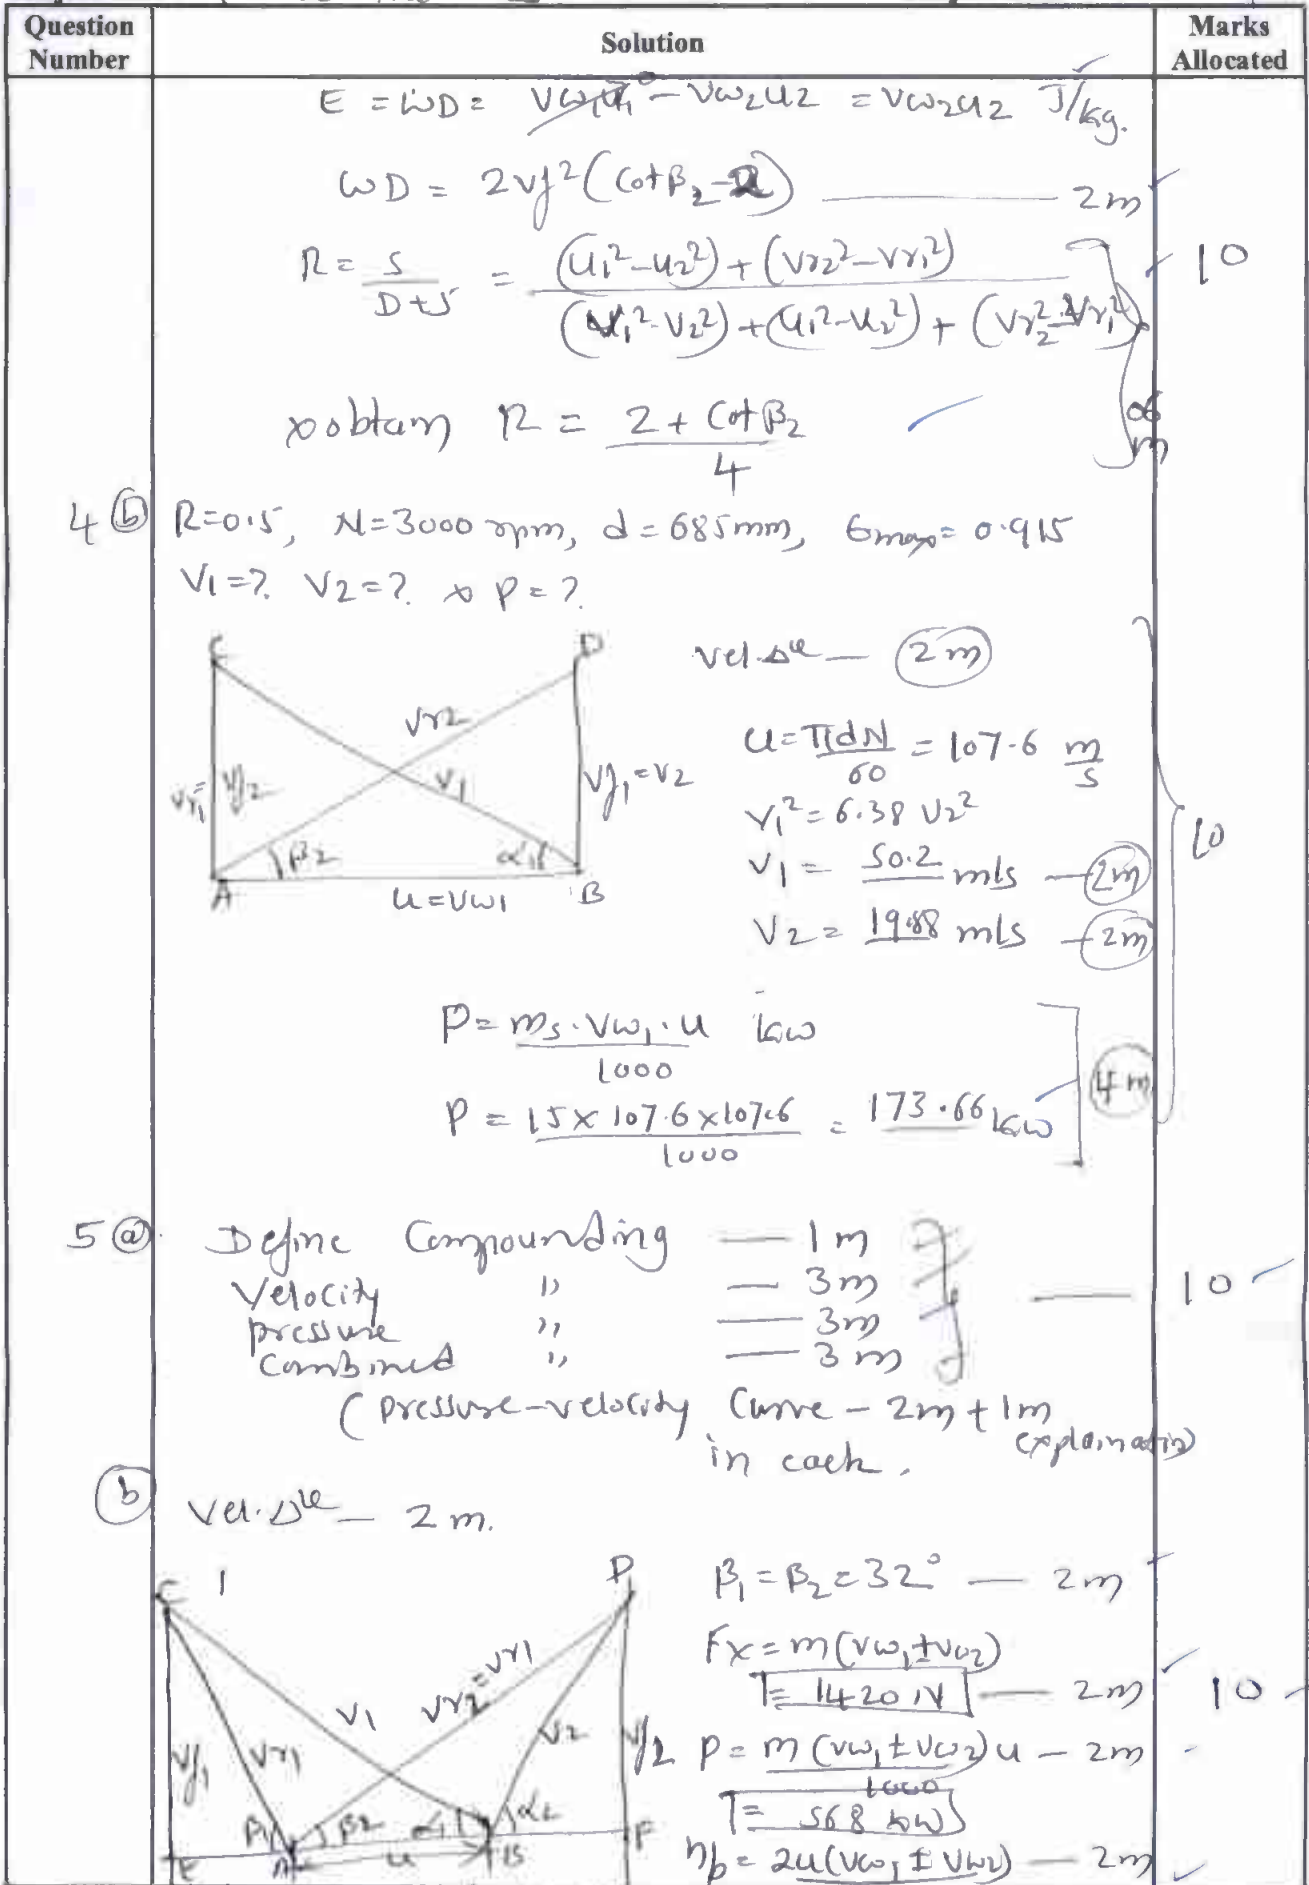 Question Number
Solution
Marks Allocated
E = WD = Vw₁u₁ ⁰ - Vw₂u₂ = Vw₂u₂ J/kg.
WD = 2Vf²(Cotβ₂-2) — 2m
R = S/D+S = (u₁²-u₂²)+(Vr₂²-Vr₁²)/(V₁²-V₂²)+(u₁²-u₂²)+(Vr₂²-Vr₁²)
10
obtain R = 2+Cotβ₂/4
06 m
4 (b) R=0.5, N=3000 rpm, d=685mm, Emax=0.915
V1=? V2=? P=?
C D
Vr2
Vr1= Vf2
V1
Vf1=V2
β2 α1
A u=Vw1 B
Vel.Δle — 2m
u=πdN/60 = 107.6 m/s
V₁²=6.38 V₂²
V1 = 50.2 m/s — 2m
V2 = 19.88 m/s — 2m
10
P = ms.Vw1.u/1000 kW
P = 15×107.6×107.6/1000 = 173.66 kW
4m
5 (a). Define Compounding — 1m
Velocity ,, — 3m
pressure ,, — 3m
Combined ,, — 3m
— 10
(pressure-velocity Curve - 2m + 1m
in each. explaination)
(b) Vel.Δle — 2m.
C D
β₁=β₂=32° — 2m
Fx=m(Vw₁±Vw2)
= 1420 N — 2m
10
V1 Vr2=Vr1
Vf1 Vr1 V2 Vf2
P = m(Vw₁±Vw2)u/1000 — 2m
= 568 kW
β1 β2 α1 α2
E A u B F
ηb = 2u(Vw₁±Vw2) — 2m